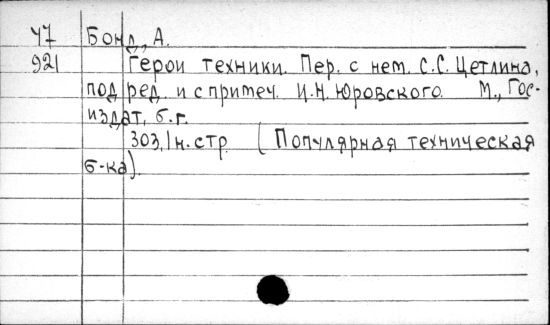 Ч7 Бонд, А.
921 Герои техники. Пер. с нем. С.С. Цетлина,
под ред. и с примеч. И.Н. Юровского. М., Гос-
издат, б.г.
303,1 н. стр. (Популярная техническая
б-ка).